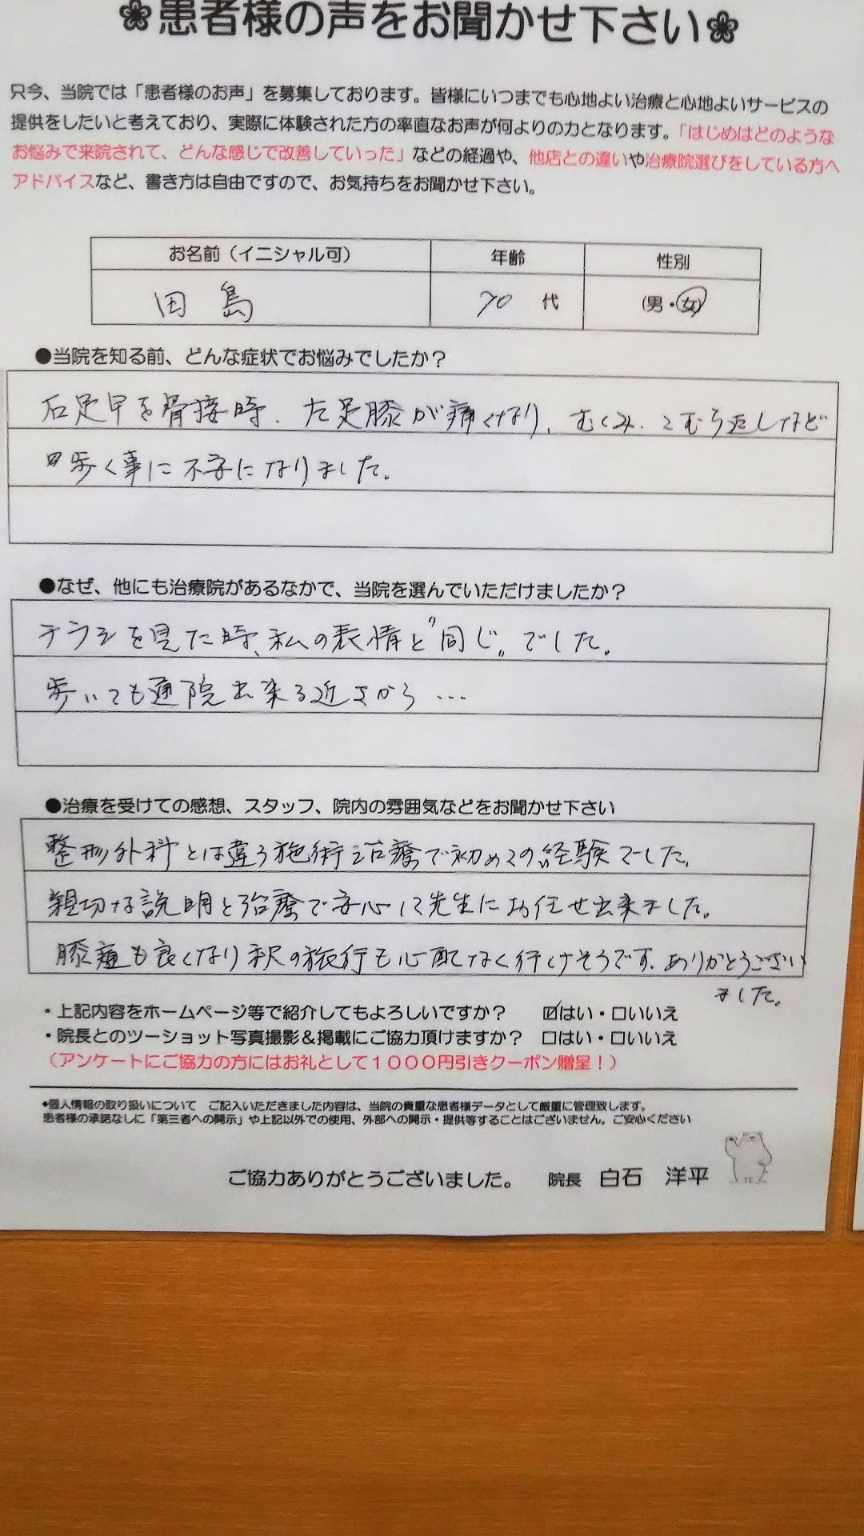 ❀患者様の声をお聞かせ下さい❀
只今、当院では「患者様のお声」を募集しております。皆様にいつまでも心地よい治療と心地よいサービスの
提供をしたいと考えており、実際に体験された方の率直なお声が何よりの力となります。「はじめはどのような
お悩みで来院されて、どんな感じで改善していった」などの経過や、他店との違いや治療院選びをしている方へ
アドバイスなど、書き方は自由ですので、お気持ちをお聞かせ下さい。
お名前（イニシャル可） 年齢 性別
田島 70 代 (男・女)
●当院を知る前、どんな症状でお悩みでしたか？
右足早を骨接時、左足膝が痛くなり、むくみ、こむら返しなど
歩く事に不字になりました。
●なぜ、他にも治療院があるなかで、当院を選んでいただけましたか？
チラシを見た時、私の表情と〝同じ〟でした。
歩いても通院出来る近さから…
●治療を受けての感想、スタッフ、院内の雰囲気などをお聞かせ下さい
整形外科とは違う施術治療で初めての経験でした。
親切な説明と治療で安心して先生にお任せ出来ました。
膝痛も良くなり秋の旅行も心配なく行けそうです。ありがとうござい
ました。
・上記内容をホームページ等で紹介してもよろしいですか？ ☑はい・□いいえ
・院長とのツーショット写真撮影＆掲載にご協力頂けますか？ □はい・□いいえ
（アンケートにご協力の方にはお礼として１０００円引きクーポン贈呈！）
*個人情報の取り扱いについて ご記入いただきました内容は、当院の貴重な患者様データとして厳重に管理致します。
患者様の承諾なしに「第三者への開示」や上記以外での使用、外部への開示・提供等することはございません。ご安心ください
ご協力ありがとうございました。 院長 白石 洋平